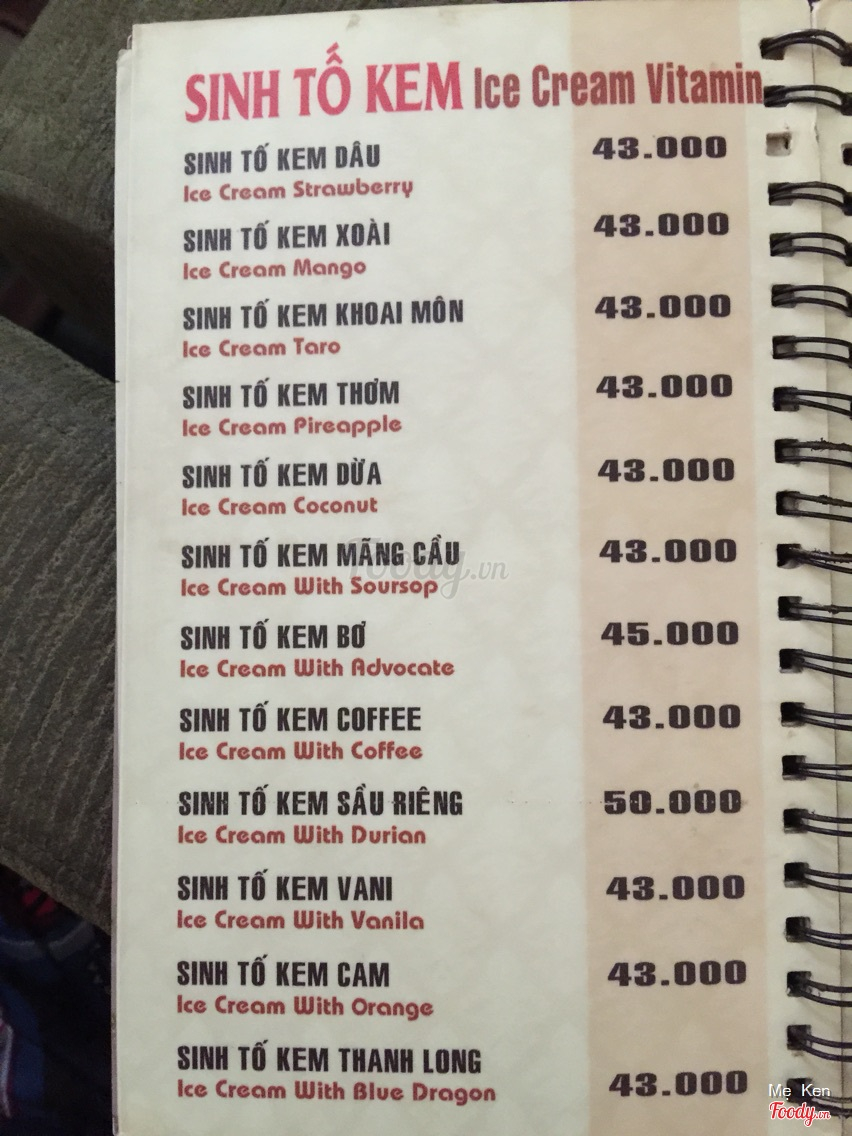 SINH TỐ KEM Ice Cream Vitamin
SINH TỐ KEM DÂU 43.000
Ice Cream Strawberry
SINH TỐ KEM XOÀI 43.000
Ice Cream Mango
SINH TỐ KEM KHOAI MÔN 43.000
Ice Cream Taro
SINH TỐ KEM THƠM 43.000
Ice Cream Pireapple
SINH TỐ KEM DỪA 43.000
Ice Cream Coconut
SINH TỐ KEM MÃNG CẦU 43.000
Ice Cream With Soursop
Foody.vn
SINH TỐ KEM BƠ 45.000
Ice Cream With Advocate
SINH TỐ KEM COFFEE 43.000
Ice Cream With Coffee
SINH TỐ KEM SẦU RIÊNG 50.000
Ice Cream With Durian
SINH TỐ KEM VANI 43.000
Ice Cream With Vanila
SINH TỐ KEM CAM 43.000
Ice Cream With Orange
SINH TỐ KEM THANH LONG 43.000
Ice Cream With Blue Dragon
Mẹ Ken
Foody.vn